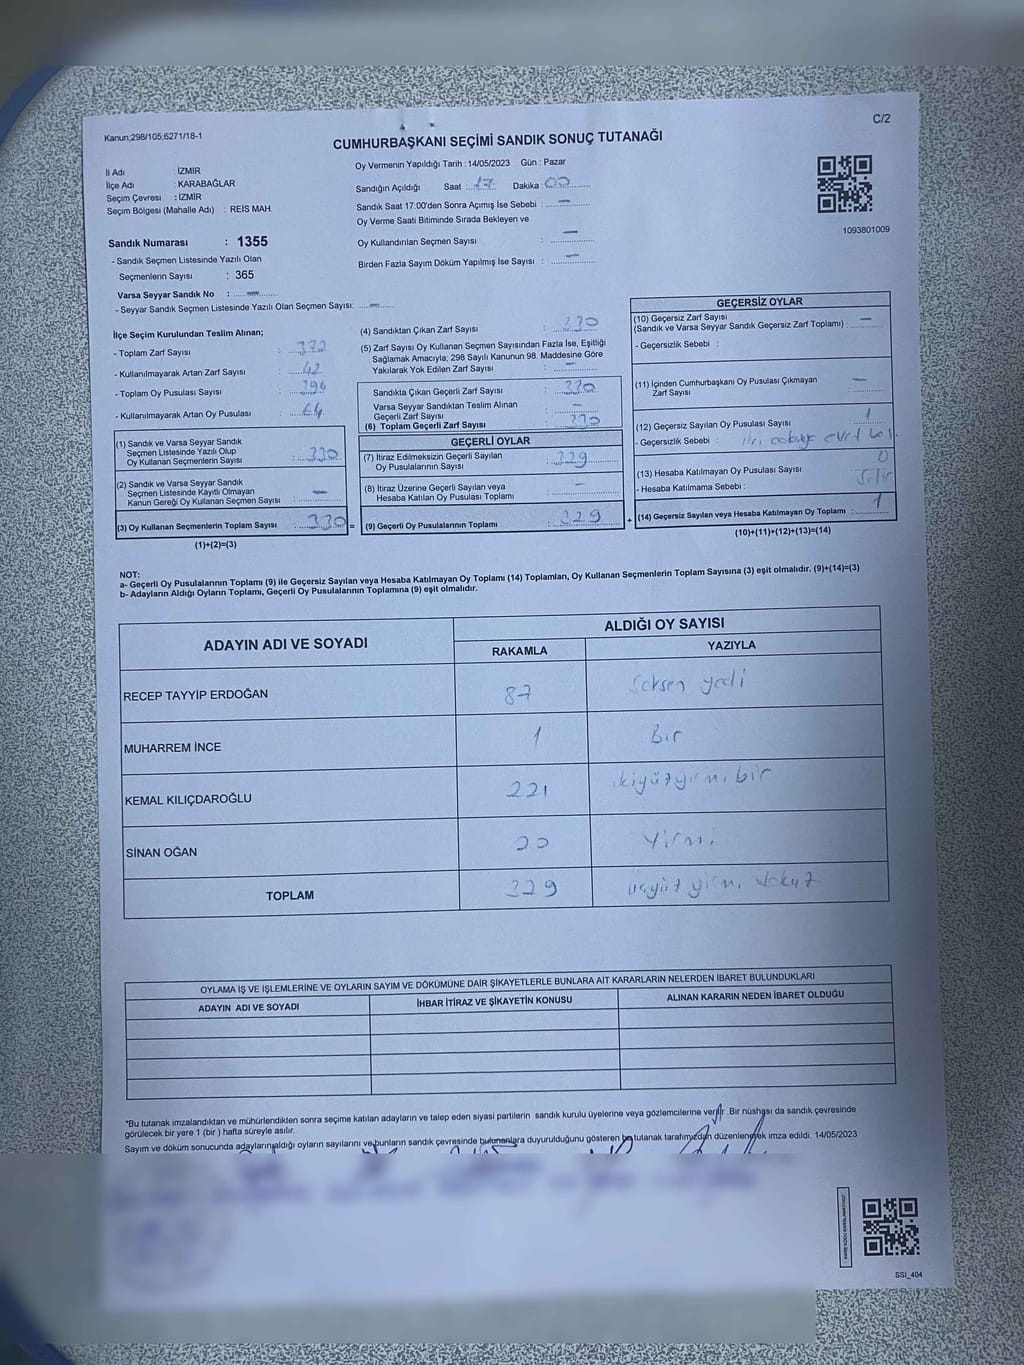 Kanun;298/105,6271/18-1
C/2
CUMHURBAŞKANI SEÇİMİ SANDIK SONUÇ TUTANAĞI
İl Adı : İZMİR
İlçe Adı : KARABAĞLAR
Seçim Çevresi : İZMİR
Seçim Bölgesi (Mahalle Adı) : REİS MAH.
Oy Vermenin Yapıldığı Tarih : 14/05/2023 Gün : Pazar
Sandığın Açıldığı Saat : 17 Dakika : 00
Sandık Saat 17:00'den Sonra Açımış İse Sebebi : —
Oy Verme Saati Bitiminde Sırada Bekleyen ve
Oy Kullandırılan Seçmen Sayısı : —
Birden Fazla Sayım Döküm Yapılmış İse Sayısı : —
1093801009
Sandık Numarası : 1355
- Sandık Seçmen Listesinde Yazılı Olan
Seçmenlerin Sayısı : 365
Varsa Seyyar Sandık No : —
- Seyyar Sandık Seçmen Listesinde Yazılı Olan Seçmen Sayısı: —
İlçe Seçim Kurulundan Teslim Alınan;
- Toplam Zarf Sayısı : 372
- Kullanılmayarak Artan Zarf Sayısı : 42
- Toplam Oy Pusulası Sayısı : 394
- Kullanılmayarak Artan Oy Pusulası : 64
(1) Sandık ve Varsa Seyyar Sandık
Seçmen Listesinde Yazılı Olup
Oy Kullanan Seçmenlerin Sayısı : 330
(2) Sandık ve Varsa Seyyar Sandık
Seçmen Listesinde Kayıtlı Olmayan
Kanun Gereği Oy Kullanan Seçmen Sayısı : —
(3) Oy Kullanan Seçmenlerin Toplam Sayısı : 330 =
(1)+(2)=(3)
(4) Sandıktan Çıkan Zarf Sayısı : 330
(5) Zarf Sayısı Oy Kullanan Seçmen Sayısından Fazla İse, Eşitliği
Sağlamak Amacıyla; 298 Sayılı Kanunun 98. Maddesine Göre
Yakılarak Yok Edilen Zarf Sayısı : —
Sandıkta Çıkan Geçerli Zarf Sayısı : 330
Varsa Seyyar Sandıktan Teslim Alınan
Geçerli Zarf Sayısı : —
(6) Toplam Geçerli Zarf Sayısı : 330
GEÇERLİ OYLAR
(7) İtiraz Edilmeksizin Geçerli Sayılan
Oy Pusulalarının Sayısı : 329
(8) İtiraz Üzerine Geçerli Sayılan veya
Hesaba Katılan Oy Pusulası Toplamı : —
(9) Geçerli Oy Pusulalarının Toplamı : 329 +
GEÇERSİZ OYLAR
(10) Geçersiz Zarf Sayısı
(Sandık ve Varsa Seyyar Sandık Geçersiz Zarf Toplamı) : —
- Geçersizlik Sebebi :
(11) İçinden Cumhurbaşkanı Oy Pusulası Çıkmayan
Zarf Sayısı : —
(12) Geçersiz Sayılan Oy Pusulası Sayısı : 1
- Geçersizlik Sebebi : evet
(13) Hesaba Katılmayan Oy Pusulası Sayısı : 0
- Hesaba Katılmama Sebebi : Sıfır
(14) Geçersiz Sayılan veya Hesaba Katılmayan Oy Toplamı : 1
(10)+(11)+(12)+(13)=(14)
NOT:
a- Geçerli Oy Pusulalarının Toplamı (9) ile Geçersiz Sayılan veya Hesaba Katılmayan Oy Toplamı (14) Toplamları, Oy Kullanan Seçmenlerin Toplam Sayısına (3) eşit olmalıdır. (9)+(14)=(3)
b- Adayların Aldığı Oyların Toplamı, Geçerli Oy Pusulalarının Toplamına (9) eşit olmalıdır.
ADAYIN ADI VE SOYADI
ALDIĞI OY SAYISI
RAKAMLA YAZIYLA
RECEP TAYYİP ERDOĞAN 87 Seksen yedi
MUHARREM İNCE 1 Bir
KEMAL KILIÇDAROĞLU 221 ikiyüzyirmibir
SİNAN OĞAN 20 Yirmi
TOPLAM 329 üçyüz yirmi dokuz
OYLAMA İŞ VE İŞLEMLERİNE VE OYLARIN SAYIM VE DÖKÜMÜNE DAİR ŞİKAYETLERLE BUNLARA AİT KARARLARIN NELERDEN İBARET BULUNDUKLARI
ADAYIN ADI VE SOYADI İHBAR İTİRAZ VE ŞİKAYETİN KONUSU ALINAN KARARIN NEDEN İBARET OLDUĞU
*Bu tutanak imzalandıktan ve mühürlendikten sonra seçime katılan adayların ve talep eden siyasi partilerin sandık kurulu üyelerine veya gözlemcilerine verilir .Bir nüshası da sandık çevresinde
görülecek bir yere 1 (bir ) hafta süreyle asılır.
Sayım ve döküm sonucunda adayların aldığı oyların sayılarını ve bunların sandık çevresinde bulunanlara duyurulduğunu gösteren bu tutanak tarafımızdan düzenlenerek imza edildi. 14/05/2023
SSI_404